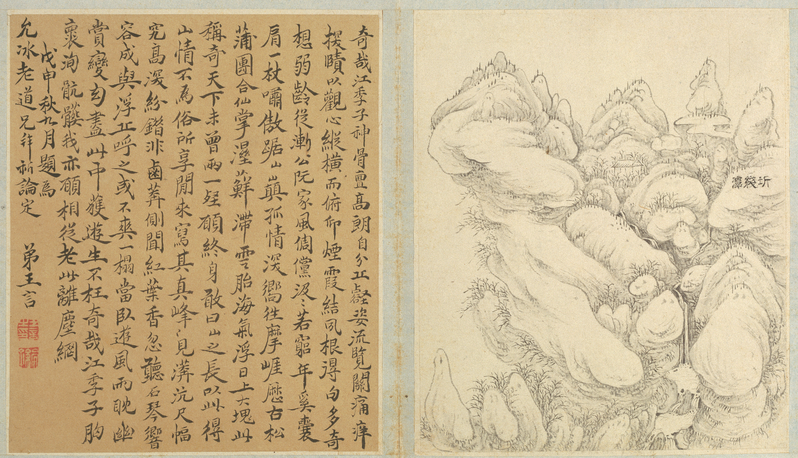 奇哉江季子神骨亶高朗自分丘壑姿流覽關痛痒
探賾以觀心縱橫而俯仰煙霞結夙根得句多奇
想弱齡從漸公阮家風倜儻汲〻若窮年奚囊
肩一杖嘯傲踞山巔孤情深嚮往摩崖歷古松
蒲團合仙掌溼蘚滯雲胎海氣浮日上大塊此
稱奇天下未曾兩一經願終身敢曰山之長以此得
山情不為俗所享閒來寫其真峰〻見漭沆尺幅
究高深紛錯非鹵莽側聞紅葉香忽聽石琴響
容成與浮丘呼之或不爽一榻當臥遊風雨耽幽
賞變幻盡此中遊生不枉奇哉江季子胸
褱洵骯髒我亦願相從老此離塵網
戊申秋九月題為
允冰老道兄祈論定 弟王言